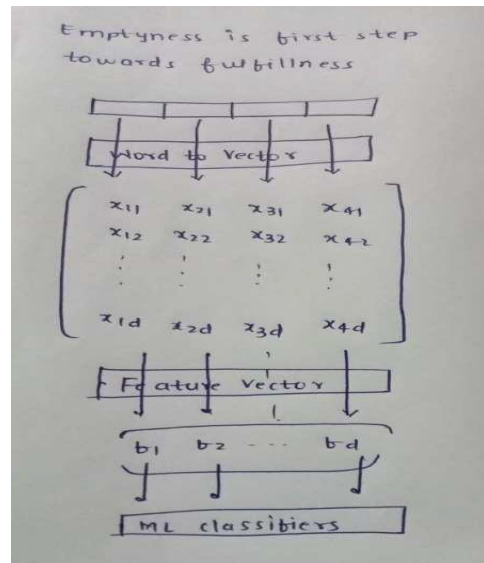 Emptyness is first step
towards fulfillness
Word to Vector
x11 x21 x31 x41
x12 x22 x32 x42
x1d x2d x3d x4d
Feature Vector
f1 f2 --- fd
ML classifiers